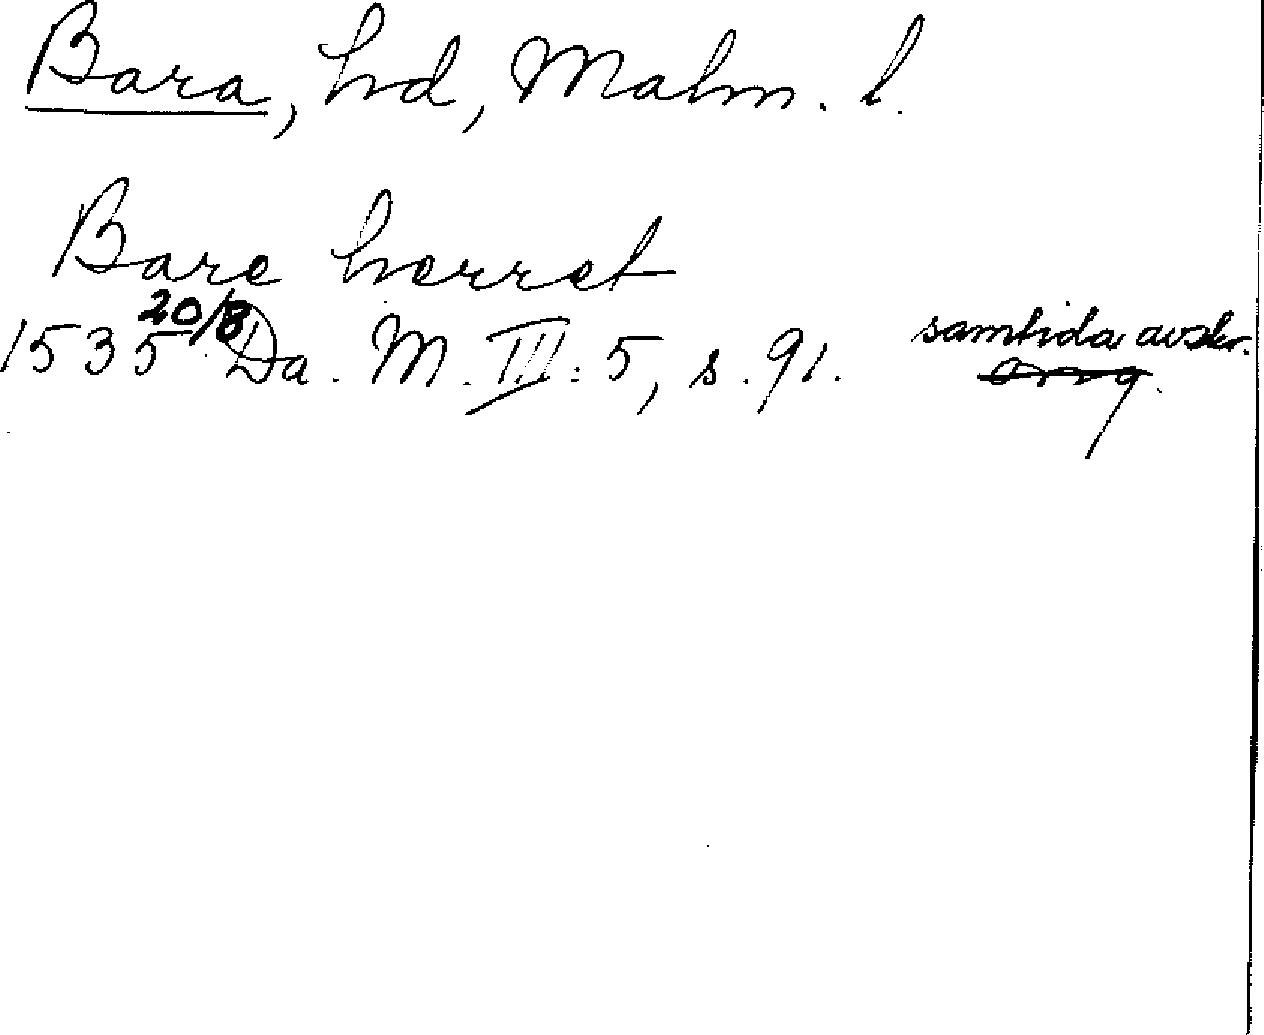 Bara, hd, Malm. l.
Bare herret
1535 20/8 Da. M. III: 5, s. 91. samtida avskr.